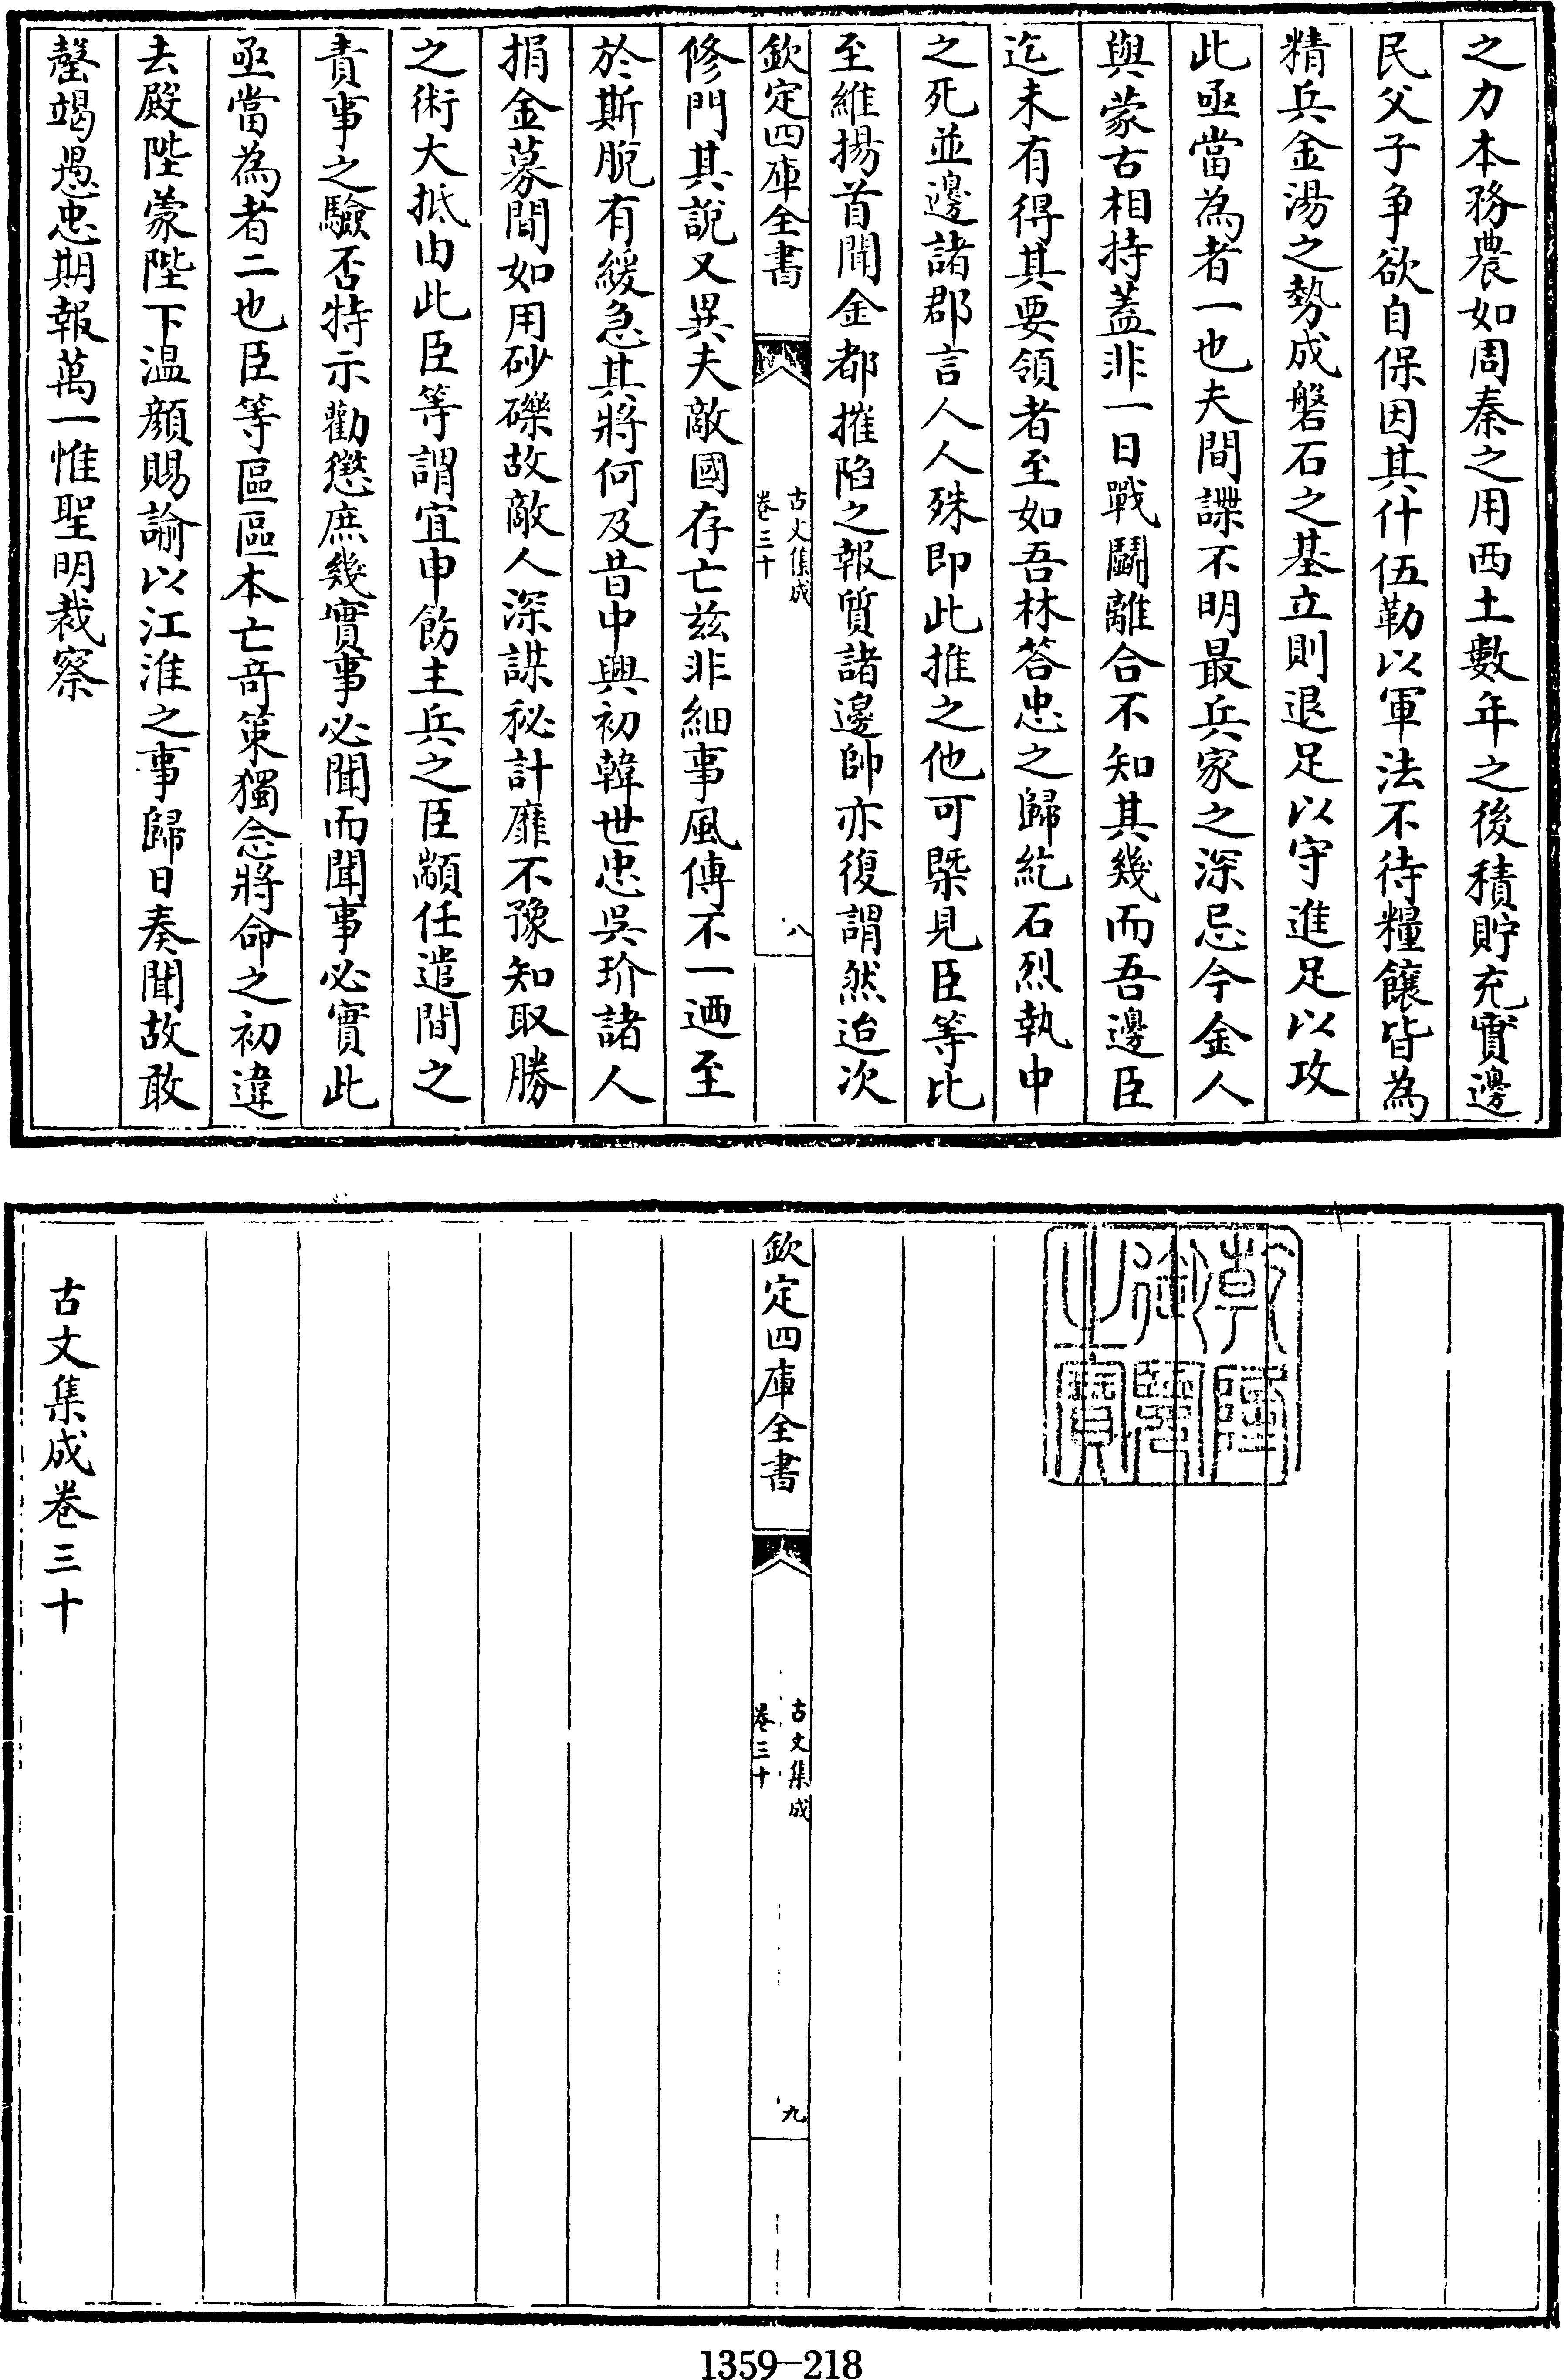 之力本務農如周秦之用西土數年之後積貯充實邊
民父子争欲自保因其什伍勒以軍法不待糧饟皆為
精兵金湯之勢成磐石之基立則退足以守進足以攻
此亟當為者一也夫間諜不明最兵家之深忌今金人
與蒙古相持蓋非一日戰鬭離合不知其幾而吾邊臣
迄未有得其要領者至如吾林荅忠之歸紇石烈執中
之死並邊諸郡言人人殊即此推之他可槩見臣等比
至維揚首聞金都摧陷之報質諸邊帥亦復謂然迨次
欽定四庫全書
古文集成
卷三十
八
修門其說又異夫敵國存亡兹非細事風傳不一迺至
於斯脫有緩急其將何及昔中興初韓世忠吳玠諸人
捐金募間如用砂礫故敵人深謀秘計靡不豫知取勝
之術大抵由此臣等謂宜申飭主兵之臣顓任遣間之
責事之驗否特示勸懲庶幾實事必聞而聞事必實此
亟當為者二也臣等區區本亡竒策獨念將命之初違
去殿陛蒙陛下温顔賜諭以江淮之事歸日奏聞故敢
罄竭愚忠期報萬一惟聖明裁察
乾隆
御覽
之寶
欽定四庫全書
古文集成
卷三十
九
古文集成卷三十
1359—218